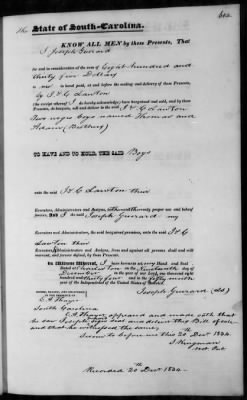 The State of South-Carolina.
KNOW ALL MEN by these Presents, That
I Joseph Guerard
for and in consideration of the sum of Eight Hundred and
thirty five Dollars
to me in hand paid, at and before the sealing and delivery of these Presents,
by I & C Lawton
(the receipt whereof I do hereby acknowledge) have bargained and sold, and by these
Presents, do bargain, sell and deliver to the said I & C Lawton
Two negro boys named Thomas and
Adam
TO HAVE AND TO HOLD, THE SAID Boys
unto the said I & C Lawton their
Executors, Administrators and Assigns, to
behoof, forever. And I the said Joseph Guerard my
Executors and Administrators, the said bargained premises, unto the said I & C
Lawton their
Executors, Administrators and Assigns, from and against all persons shall and will
warrant, and forever defend, by these Presents.
In Witness Whereof, I have hereunto set my Hand and Seal
Dated at on the day of
December in the year of our Lord one thousand eight hundred and
thirty and in the
year of the Independence of the United States of America.
SIGNED, SEALED, AND DELIVERED
IN THE PRESENCE OF
Joseph Guerard (LS)
E. A. Thayer
South Carolina
E. A. Thayer appeared and made oath that
he saw Joseph Guerard seal and deliver this Bill of Sale
and that he witnessed the same,
Sworn to before me this 20 Decr 1834.
J. Kingman
Not. Pub.
Recorded 20th Decr 1834.